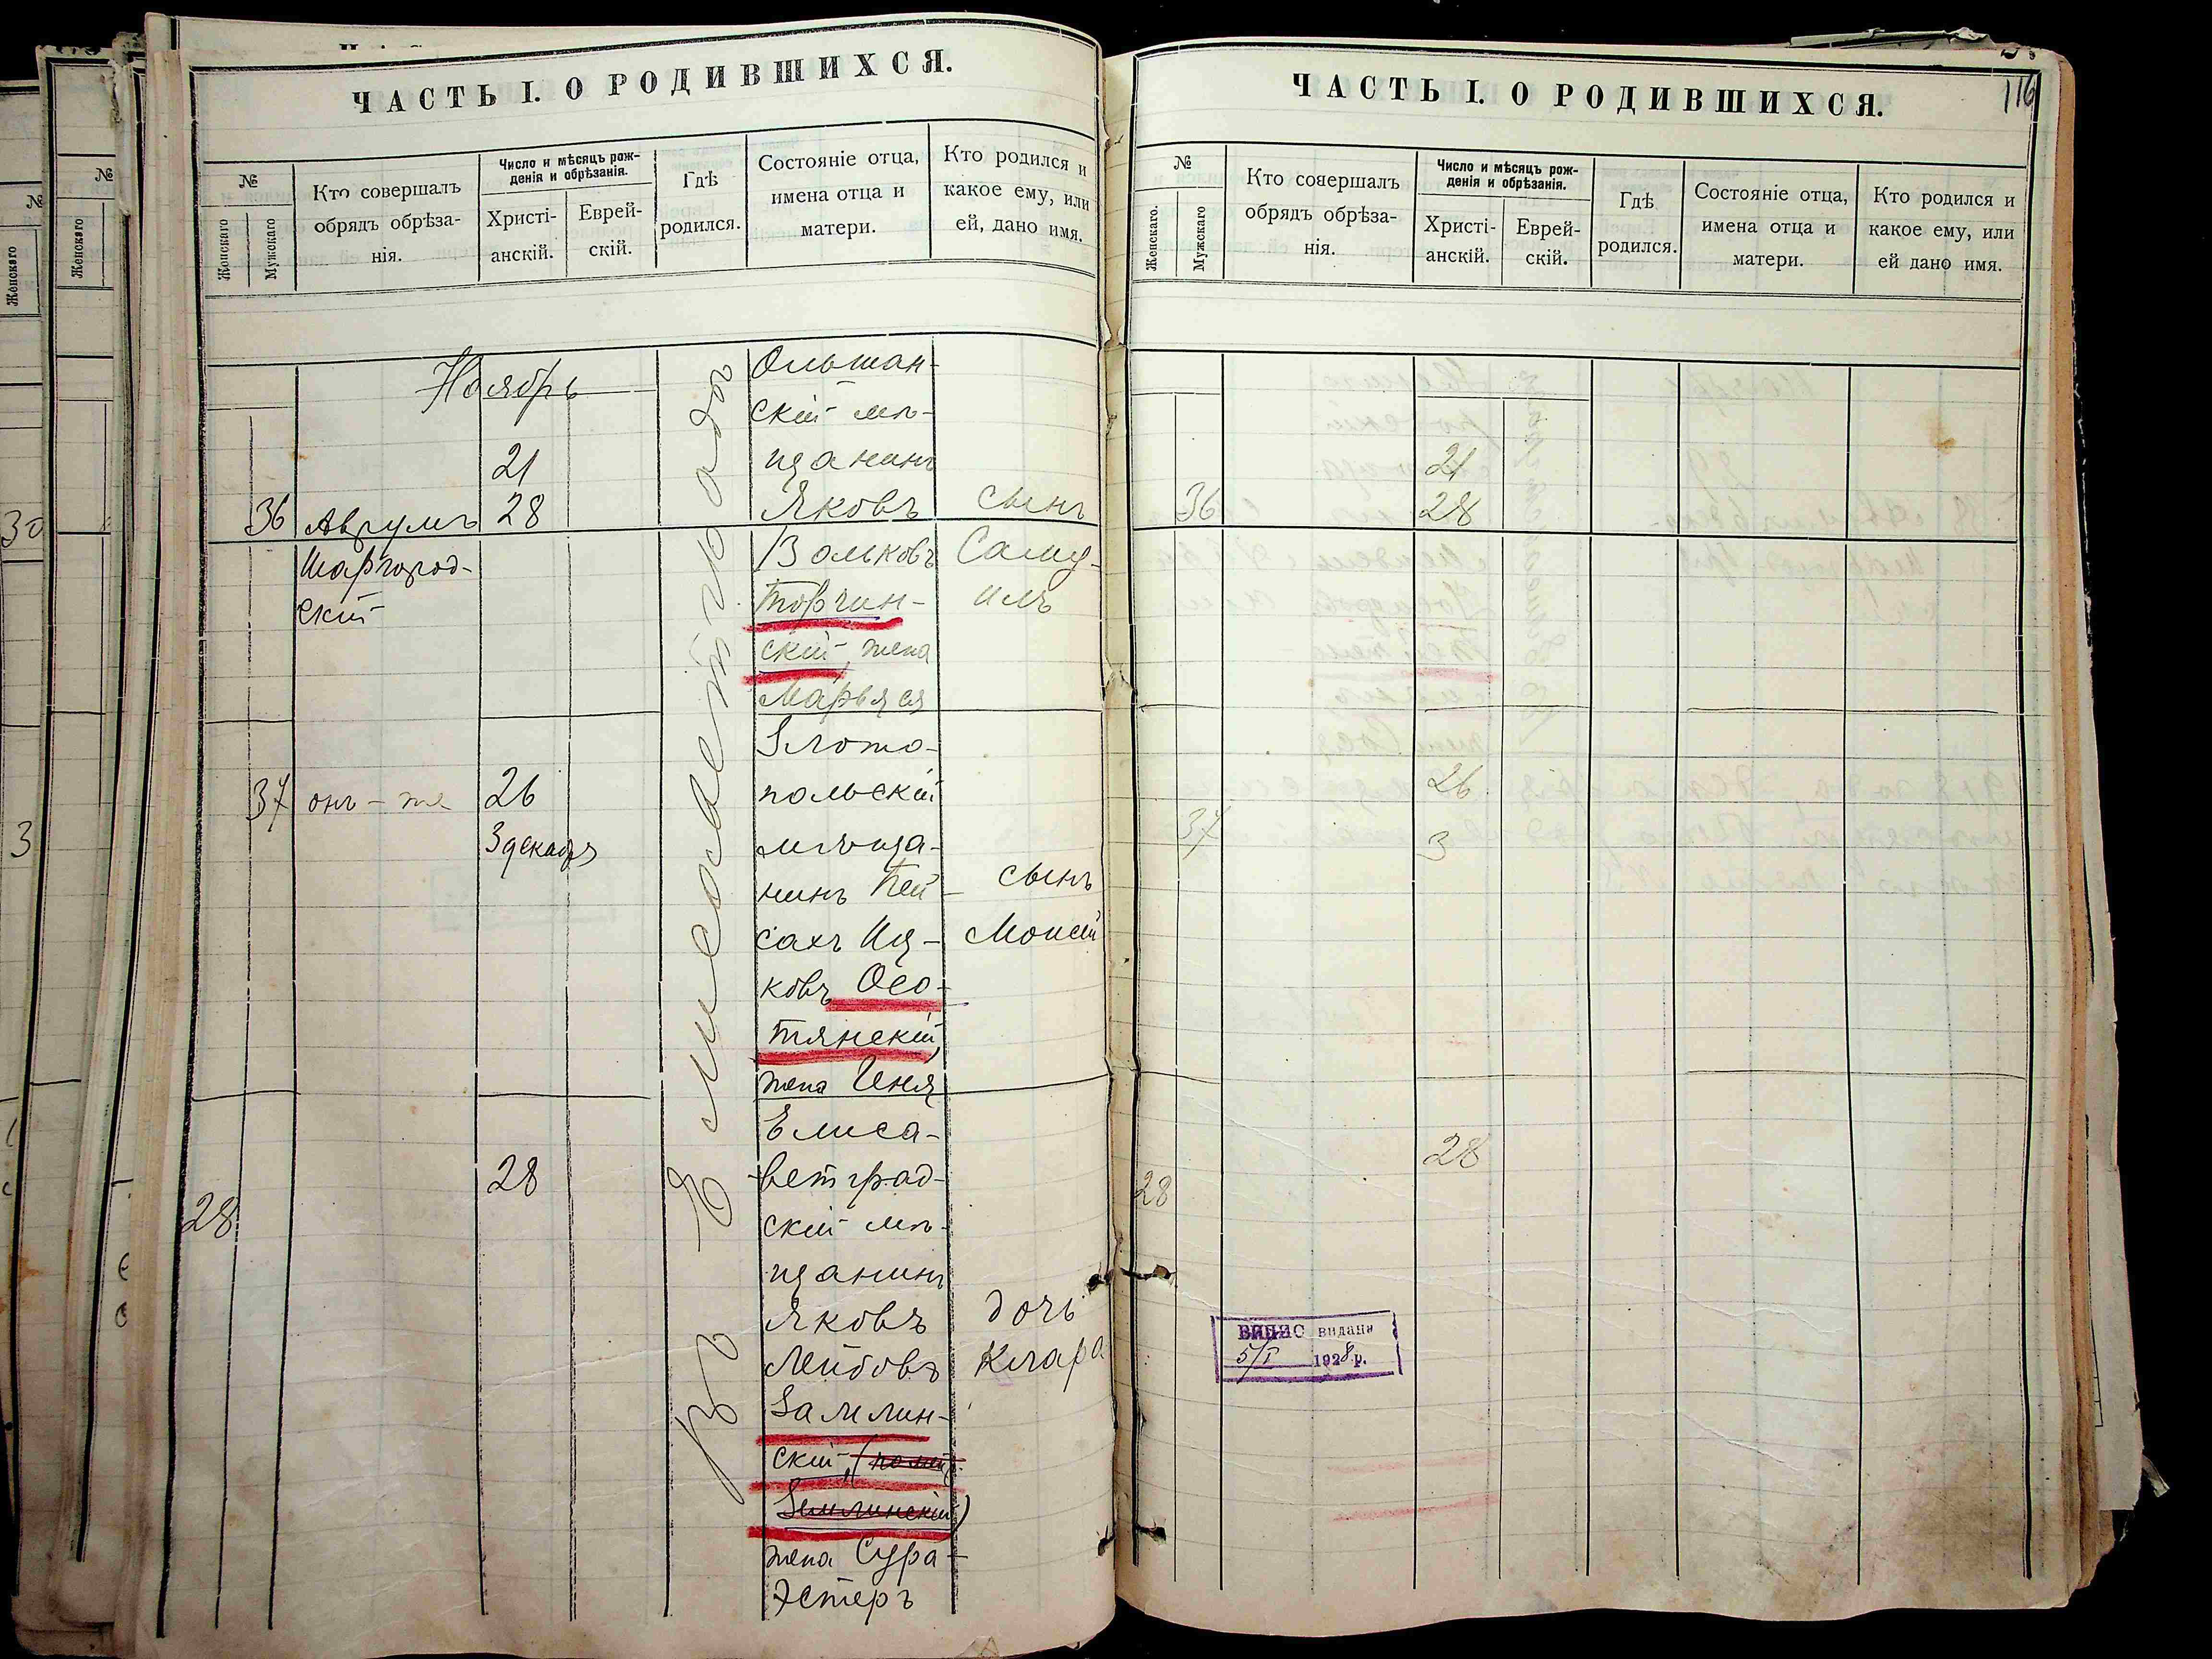 ЧАСТЬ I. О РОДИВШИХСЯ.
№
Женскаго
Мужскаго
Кто совершалъ
обрядъ обрѣза-
нія.
Число и мѣсяцъ рож-
денія и обрѣзанія.
Христі-
анскій.
Еврей-
скій.
Гдѣ
родился.
Состояніе отца,
имена отца и
матери.
Кто родился и
какое ему, или
ей, дано имя.
Ноябрь
36
Аврумъ
Шаргород-
скій
21
28
Въ Елисаветградѣ
Ольшан-
скій мѣ-
щанинъ
Яковъ
Вольковъ
Торчин-
скій, жена
Марьяся
сынъ
Саму-
илъ
37
онъ-же
26
3 декабря
Злото-
польскій
мѣща-
нинъ Пей-
сахъ Иц-
ковъ Осо-
тянскій,
жена Еня
сынъ
Моисей
28
28
Елиса-
ветград-
скій мѣ-
щанинъ
Яковъ
Лейбовъ
Замлин-
скій,
Землинскій)
жена Сура-
Эстеръ
дочь
Клара
ЧАСТЬ I. О РОДИВШИХСЯ.
116
№
Женскаго.
Мужскаго
Кто совершалъ
обрядъ обрѣза-
нія.
Число и мѣсяцъ рож-
денія и обрѣзанія.
Христі-
анскій.
Еврей-
скій.
Гдѣ
родился.
Состояніе отца,
имена отца и
матери.
Кто родился и
какое ему, или
ей дано имя.
36
21
28
37
26
3
28
28
ВИПИС видани
5/I 1928 р.
№
Женскаго
30
3
№
Женскаго